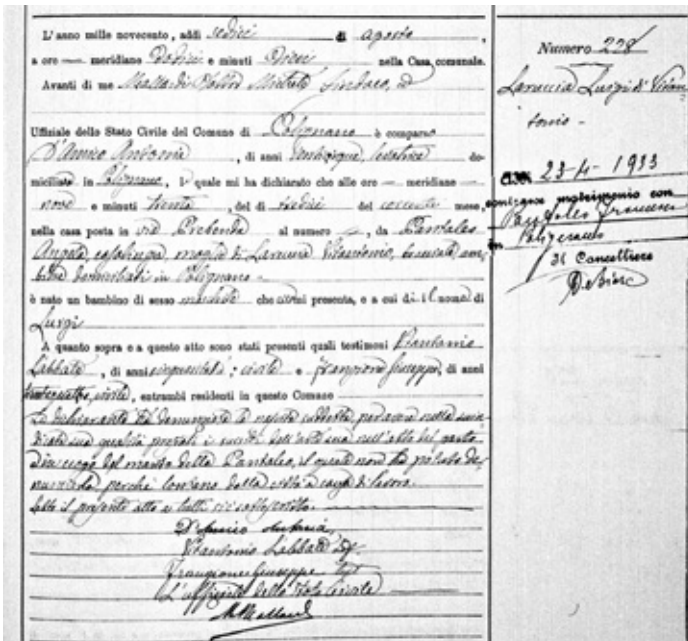 L'anno mille novecento, addì sedici di agosto,
a ore — meridiane dodici e minuti dieci nella Casa comunale.
Avanti di me Sindaco, ed
Uffiziale dello Stato Civile del Comune di Polignano è comparsa
D'Amico Antonia, di anni levatrice do-
miciliata in Polignano, la quale mi ha dichiarato che alle ore — meridiane —
nove e minuti trenta, del dì tredici del corrente mese,
nella casa posta in via Prebenda al numero —, da Pantaleo
Angela, casalinga, moglie di Laruccia Vitantonio, am-
bidue domiciliati in Polignano —
è nato un bambino di sesso maschile che mi presenta, e a cui dà il nome di
Luigi
A quanto sopra e a questo atto sono stati presenti quali testimoni Vitantonio
Labbate, di anni civile e Frangione Giuseppe, di anni
trentaquattro, civile, entrambi residenti in questo Comune —
La dichiarante ha denunciato la nascita suddetta, per aver nella sua
qualità di all'atto del parto
in luogo del marito della Pantaleo, il quale non ha potuto de-
nunciarla perchè lontano dalla città a causa di lavoro.
Letto il presente atto a tutti, si è sottoscritto.
D'Amico Antonia
Vitantonio Labbate
Frangione Giuseppe
L'uffiziale dello Stato Civile
Numero 228
Laruccia Luigi di Vitan-
tonio -
23-4-1933
contrasse matrimonio con
Pantaleo
in Polignano
Il Cancelliere